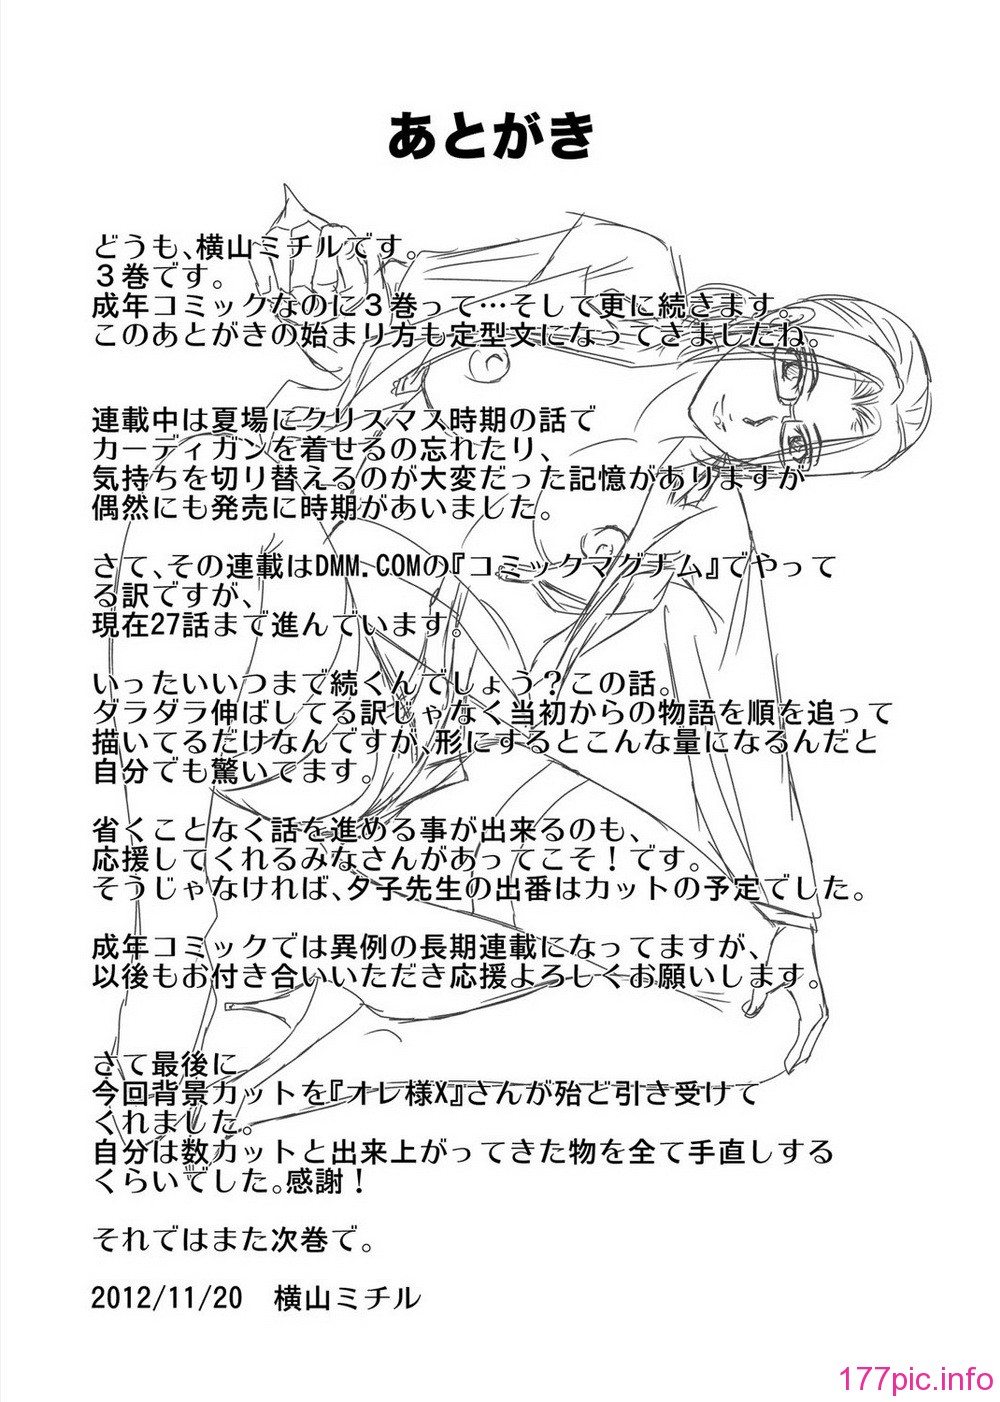 あとがき
どうも、横山ミチルです。
３巻です。
成年コミックなのに３巻って…そして更に続きます。
このあとがきの始まり方も定型文になってきましたね。
連載中は夏場にクリスマス時期の話で
カーディガンを着せるの忘れたり、
気持ちを切り替えるのが大変だった記憶がありますが
偶然にも発売に時期があいました。
さて、その連載はDMM.COMの『コミックマグナム』でやって
る訳ですが、
現在27話まで進んでいます。
いったいいつまで続くんでしょう？この話。
ダラダラ伸ばしてる訳じゃなく当初からの物語を順を追って
描いてるだけなんですが、形にするとこんな量になるんだと
自分でも驚いてます。
省くことなく話を進める事が出来るのも、
応援してくれるみなさんがあってこそ！です。
そうじゃなければ、夕子先生の出番はカットの予定でした。
成年コミックでは異例の長期連載になってますが、
以後もお付き合いいただき応援よろしくお願いします。
さて最後に
今回背景カットを『オレ様X』さんが殆ど引き受けて
くれました。
自分は数カットと出来上がってきた物を全て手直しする
くらいでした。感謝！
それではまた次巻で。
2012/11/20　横山ミチル
177pic.info